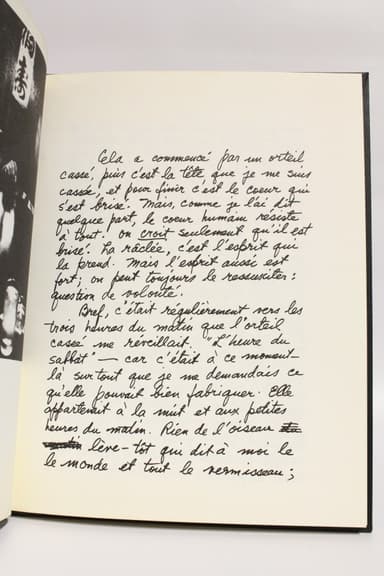 Cela a commencé par un orteil
cassé, puis c'est la tête que je me suis
cassée, et pour finir c'est le coeur qui
s'est brisé. Mais, comme je l'ai dit
quelque part, le coeur humain résiste
à tout. On croit seulement qu'il est
brisé. La râclée, c'est l'esprit qui
la prend. Mais l'esprit aussi est
fort; on peut toujours le ressusciter:
question de volonté.
Bref, c'était régulièrement vers les
trois heures du matin que l'orteil
cassé me réveillait. "L'heure du
sabbat" — car c'était à ce moment-
là surtout que je me demandais ce
qu'elle pouvait bien fabriquer. Elle
appartenait à la nuit et aux petites
heures du matin. Rien de l'oiseau
lève-tôt qui dit à moi le
le monde et tout le vermisseau;